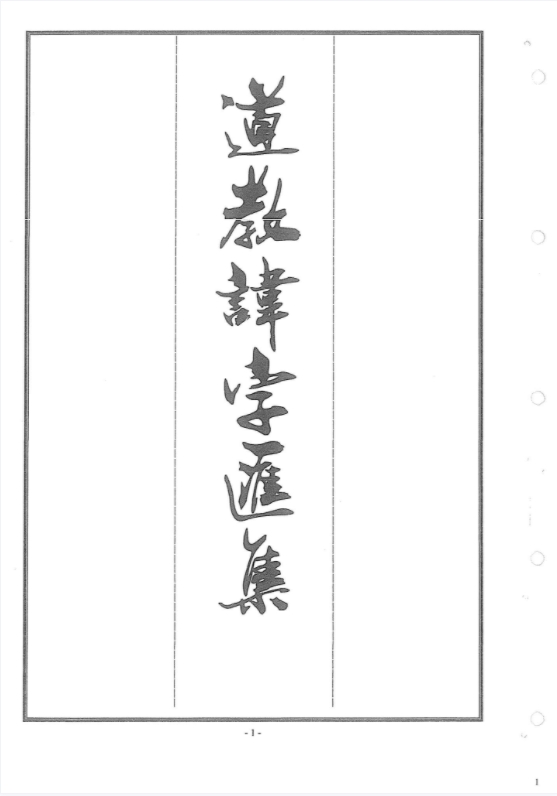 道教諱字匯集
- 1 -
1